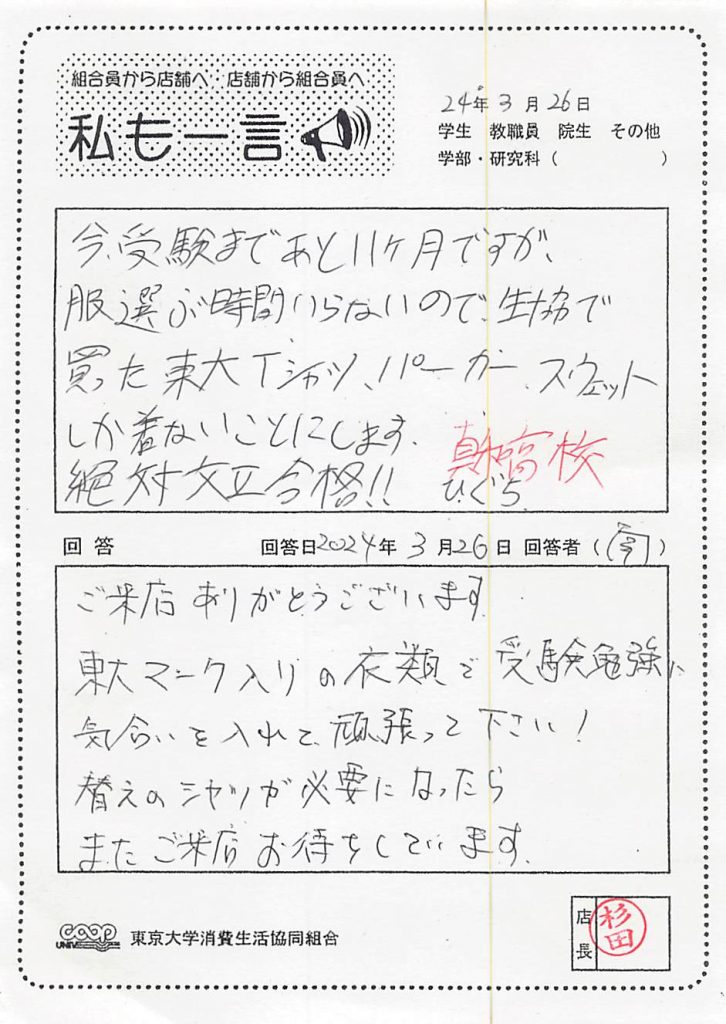 組合員から店舗へ・店舗から組合員へ
私も一言
24年3月26日
学生 教職員 院生 その他
学部・研究科（ ）
今、受験まであと11ヶ月ですが、
服選ぶ時間いらないので、生協で
買った東大Tシャツ、パーカー、スウェット
しか着ないことにします。
絶対文Ⅰ合格!!
高校
ひぐち
回答 回答日2024年3月26日 回答者（ ）
ご来店ありがとうございます
東大マーク入りの衣類で受験勉強に
気合いを入れて、頑張って下さい!
替えのシャツが必要になったら
またご来店お待ちしています。
coop
UNIV.
東京大学消費生活協同組合
店長
杉田